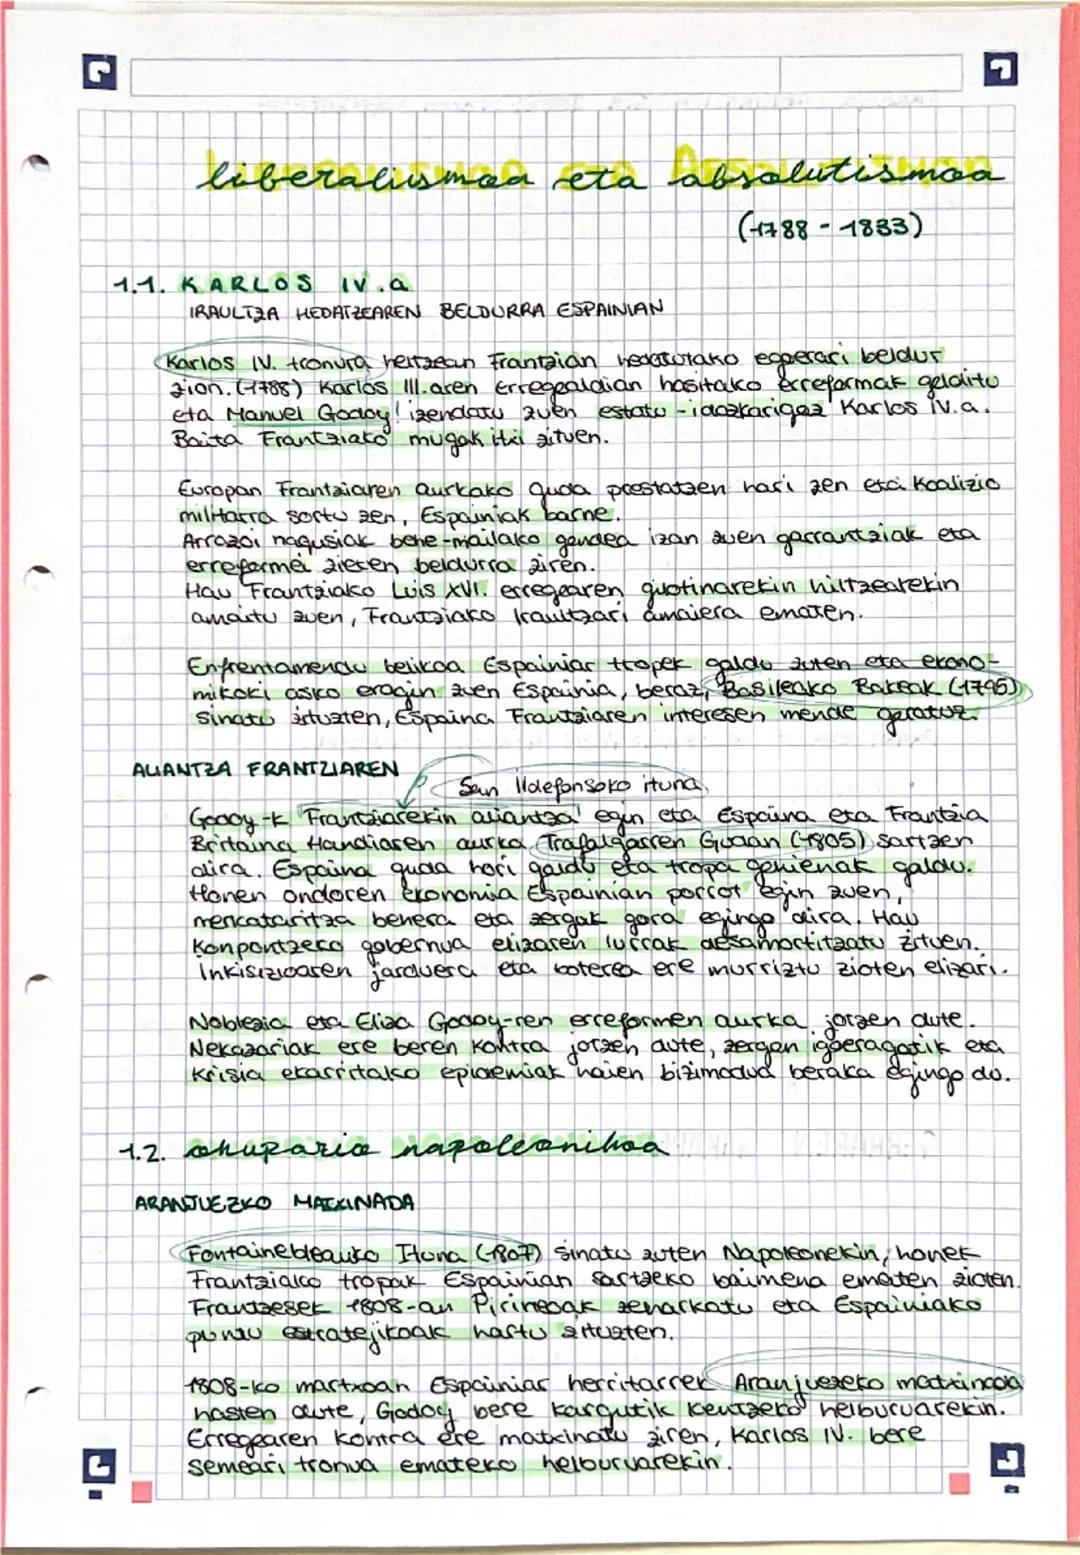 liberalismoa eta absolutismoa
(1788 - 1833)
1.1. KARLOS IV.a
IRAULTZA HEDATZEAREN BELDURRA ESPAINIAN
Karlos IV. tronura heltzean Frantzian hedatutako egoerari beldur
zion. (1788) Karlos III.aren Erregealdian hasitako erreformak gelditu
eta Manuel Godoy! izendatu zuen estatu-idazkarigaz Karlos IV.a.
Baita Frantziako mugak itxi zituen.
Europan Frantziaren aurkako guda prestatzen hari zen eta Koalizio
militarra sortu zen, Espainiak barne.
Arrazoi nagusiak behe-mailako gendea izan zuen garrantziak eta
erreformei zieten beldurra ziren.
Hau Frantziako Luis XVI. erregearen guotinarekin hiltzearekin
amaitu zuen, Frantziako Iraultzari amaiera ematen.
Enfrentamendu belikoa Espainiar tropek galdu zuten eta ekono-
mikoki asko eragin zuen Espainia, beraz, Basileako Bakeak (1795)
sinatu zituzten, Espaina Frantziaren interesen mende geratuz.
ALIANTZA FRANTZIAREN
San Ildefonsoko ituna
Godoy-k Frantziarekin aliantza egin eta Espaina eta Frantzia
Britaina Handiaren aurka Trafalgarren Gudan (1805) sartzen
dira. Espaina guda hori galdu eta tropa gehienak galdu.
Honen ondoren ekonomia Espainian porrot egin zuen,
merkataritza behera eta zergak gora egingo dira. Hau
Konpontzeko gobernua elizaren lurrak desamortitzatu zituen.
Inkisizioaren jarduera eta boterea ere murriztu zioten elizari.
Noblezia eta Eliza Godoy-ren erreformen aurka jotzen dute.
Nekazariak ere beren kontra jotzen dute, zergen igoeragatik eta
Krisia ekarritako epidemiak haien bizimodua beraka egingo du.
1.2. okupazio napoleonikoa
ARANJUEZKO MATXINADA
Fontainebleauko Ituna (1807) sinatu zuten Napoleonekin, honek
Frantziako tropak Espainian sartzeko baimena ematen zioten.
Frantzesek 1808-an Pirineoak zeharkatu eta Espainiako
puntu estratejikoak hartu zituzten.
1808-ko martxoan Espainiar herritarrek Aranjuezeko matxinada
hasten dute, Godoy bere kargutik kentzeko helburuarekin.
Erregearen kontra ere matxinatu ziren, Karlos IV. bere
semeari tronua emateko helburuarekin.